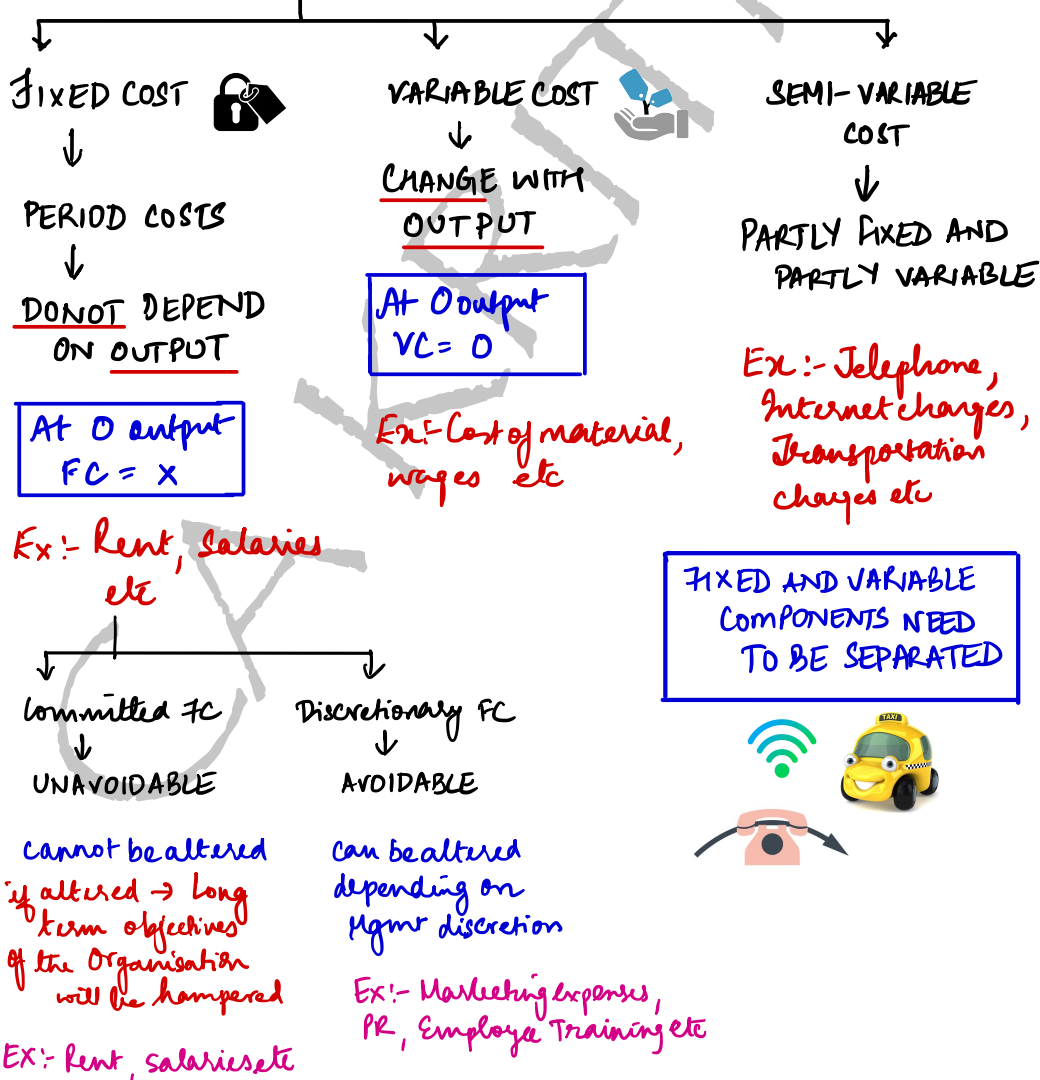 FIXED COST
PERIOD COSTS
DO NOT DEPEND
ON OUTPUT
At 0 output
FC = x
Ex:- Rent, Salaries
etc
Committed FC
UNAVOIDABLE
cannot be altered
if altered → Long
term objectives
of the Organisation
will be hampered
EX:- Rent, Salaries etc
Discretionary FC
AVOIDABLE
can be altered
depending on
Mgmt discretion
Ex:- Marketing expenses,
PR, Employee Training etc
VARIABLE COST
CHANGE WITH
OUTPUT
At 0 output
VC = 0
Ex:- Cost of material,
wages etc
SEMI-VARIABLE
COST
PARTLY FIXED AND
PARTLY VARIABLE
Ex:- Telephone,
Internet charges,
Transportation
charges etc
FIXED AND VARIABLE
COMPONENTS NEED
TO BE SEPARATED
TAXI